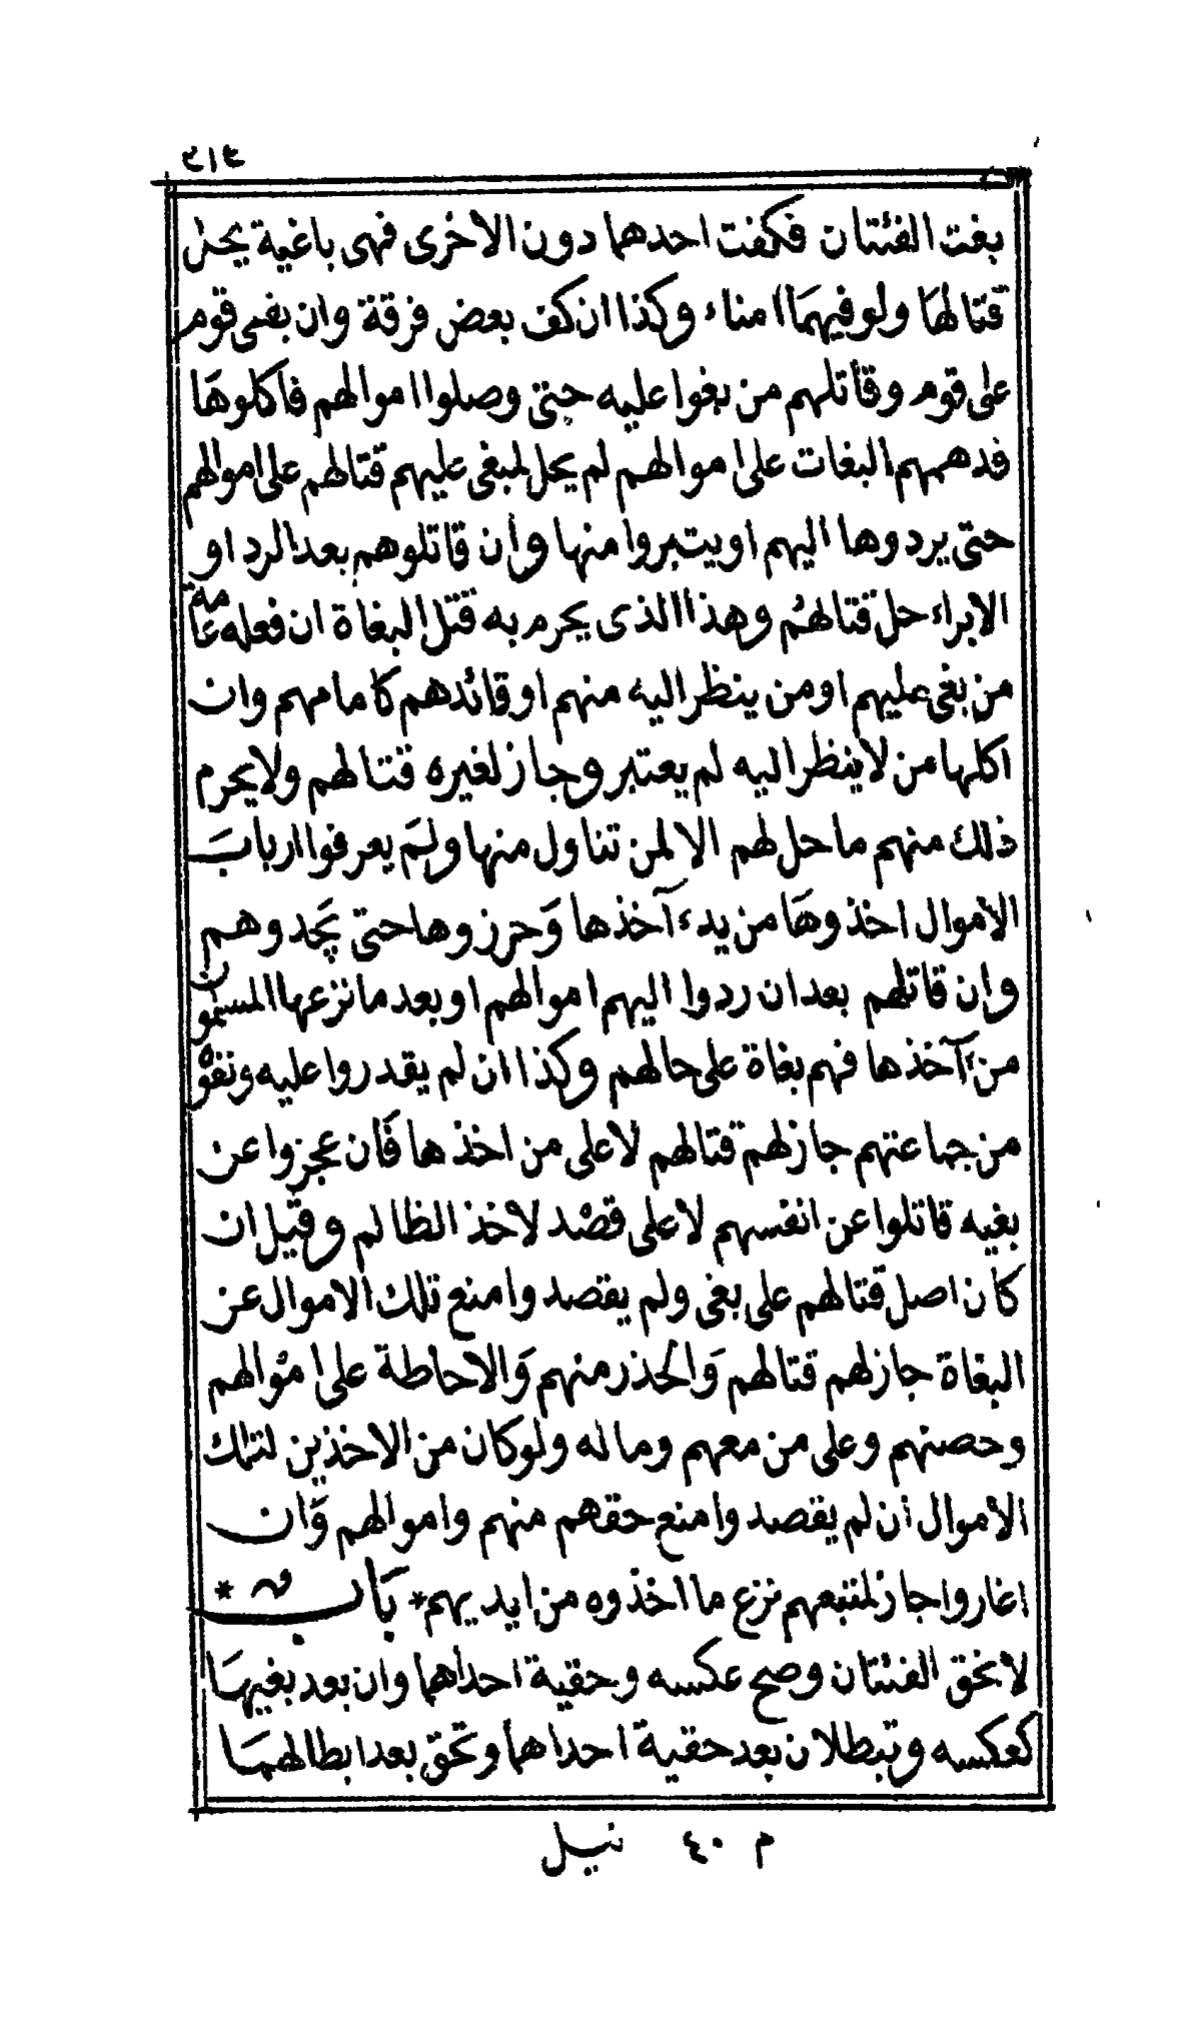 ٣١٣
بغت الفئتان فكفت احدهما دون الاخرى فهى باغية يحل
قتالها ولو فيهما امناء وكذا ان كف بعض فرقة وان بغى قوم
على قوم وقاتلهم من بغوا عليه حتى وصلوا اموالهم فاكلوها
فدهمهم البغات على اموالهم لم يحل لمبغى عليهم قتالهم على اموالهم
حتى يردوها اليهم او يتبروا منها وان قاتلوهم بعد الرد او
الابراء حل قتالهم وهذا الذى يحرم به قتل البغاة ان فعله عامة
من بغى عليهم او من ينظر اليه منهم او قائدهم كامامهم وان
اكلها من لا ينظر اليه لم يعتبر وجاز لغيره قتالهم ولا يحرم
ذلك منهم ما حل لهم الا لمن تناول منها ولم يعرفوا ارباب
الاموال اخذوها من يد آخذها وحرزوها حتى يجدوهم
وان قاتلهم بعد ان ردوا اليهم اموالهم او بعد ما نزعها المسلمون
من آخذها فهم بغاة على حالهم وكذا ان لم يقدروا عليه ونفوه
من جماعتهم جاز لهم قتالهم لا على من اخذها فان عجزوا عن
بغيه قاتلوا عن انفسهم لا على قصد لاخذ الظالم وقيل ان
كان اصل قتالهم على بغى ولم يقصد وا منع تلك الاموال عن
البغاة جاز لهم قتالهم والحذر منهم والاحاطة على اموالهم
وحصنهم وعلى من معهم وما له ولو كان من الاخذين لتلك
الاموال ان لم يقصد وا منع حقهم منهم واموالهم وان
اغاروا جاز لمتبعهم نزع ما اخذوه من ايديهم * باب *
لا تحق الفئتان وصح عكسه وحقية احداهما وان بعد بغيها
كعكسه وتبطلان بعد حقية احداهما وتحق بعد ابطالهما
م ٤٠ نيل